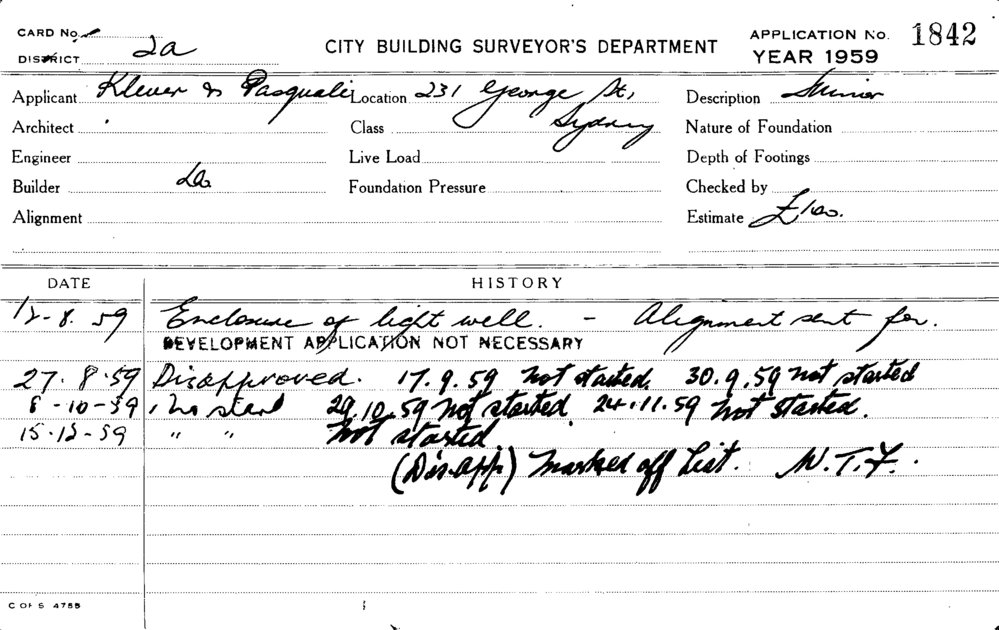 CARD No.
DISTRICT 2a
CITY BUILDING SURVEYOR'S DEPARTMENT
APPLICATION No. 1842
YEAR 1959
Applicant Klever & Pasquali Location 231 George St, Description Minor
Architect Class Sydney Nature of Foundation
Engineer Live Load Depth of Footings
Builder do Foundation Pressure Checked by
Alignment Estimate £100.
DATE HISTORY
12-8.59 Enclosure of light well. - Alignment sent for.
DEVELOPMENT APPLICATION NOT NECESSARY
27.8.59 Disapproved. 17.9.59 Not started. 30.9.59 not started
8-10-59 No start 29.10.59 not started 24.11.59 not started.
15-12-59 " " not started
(Dis.app.) marked off list. W.T.F.
C OF S 4755